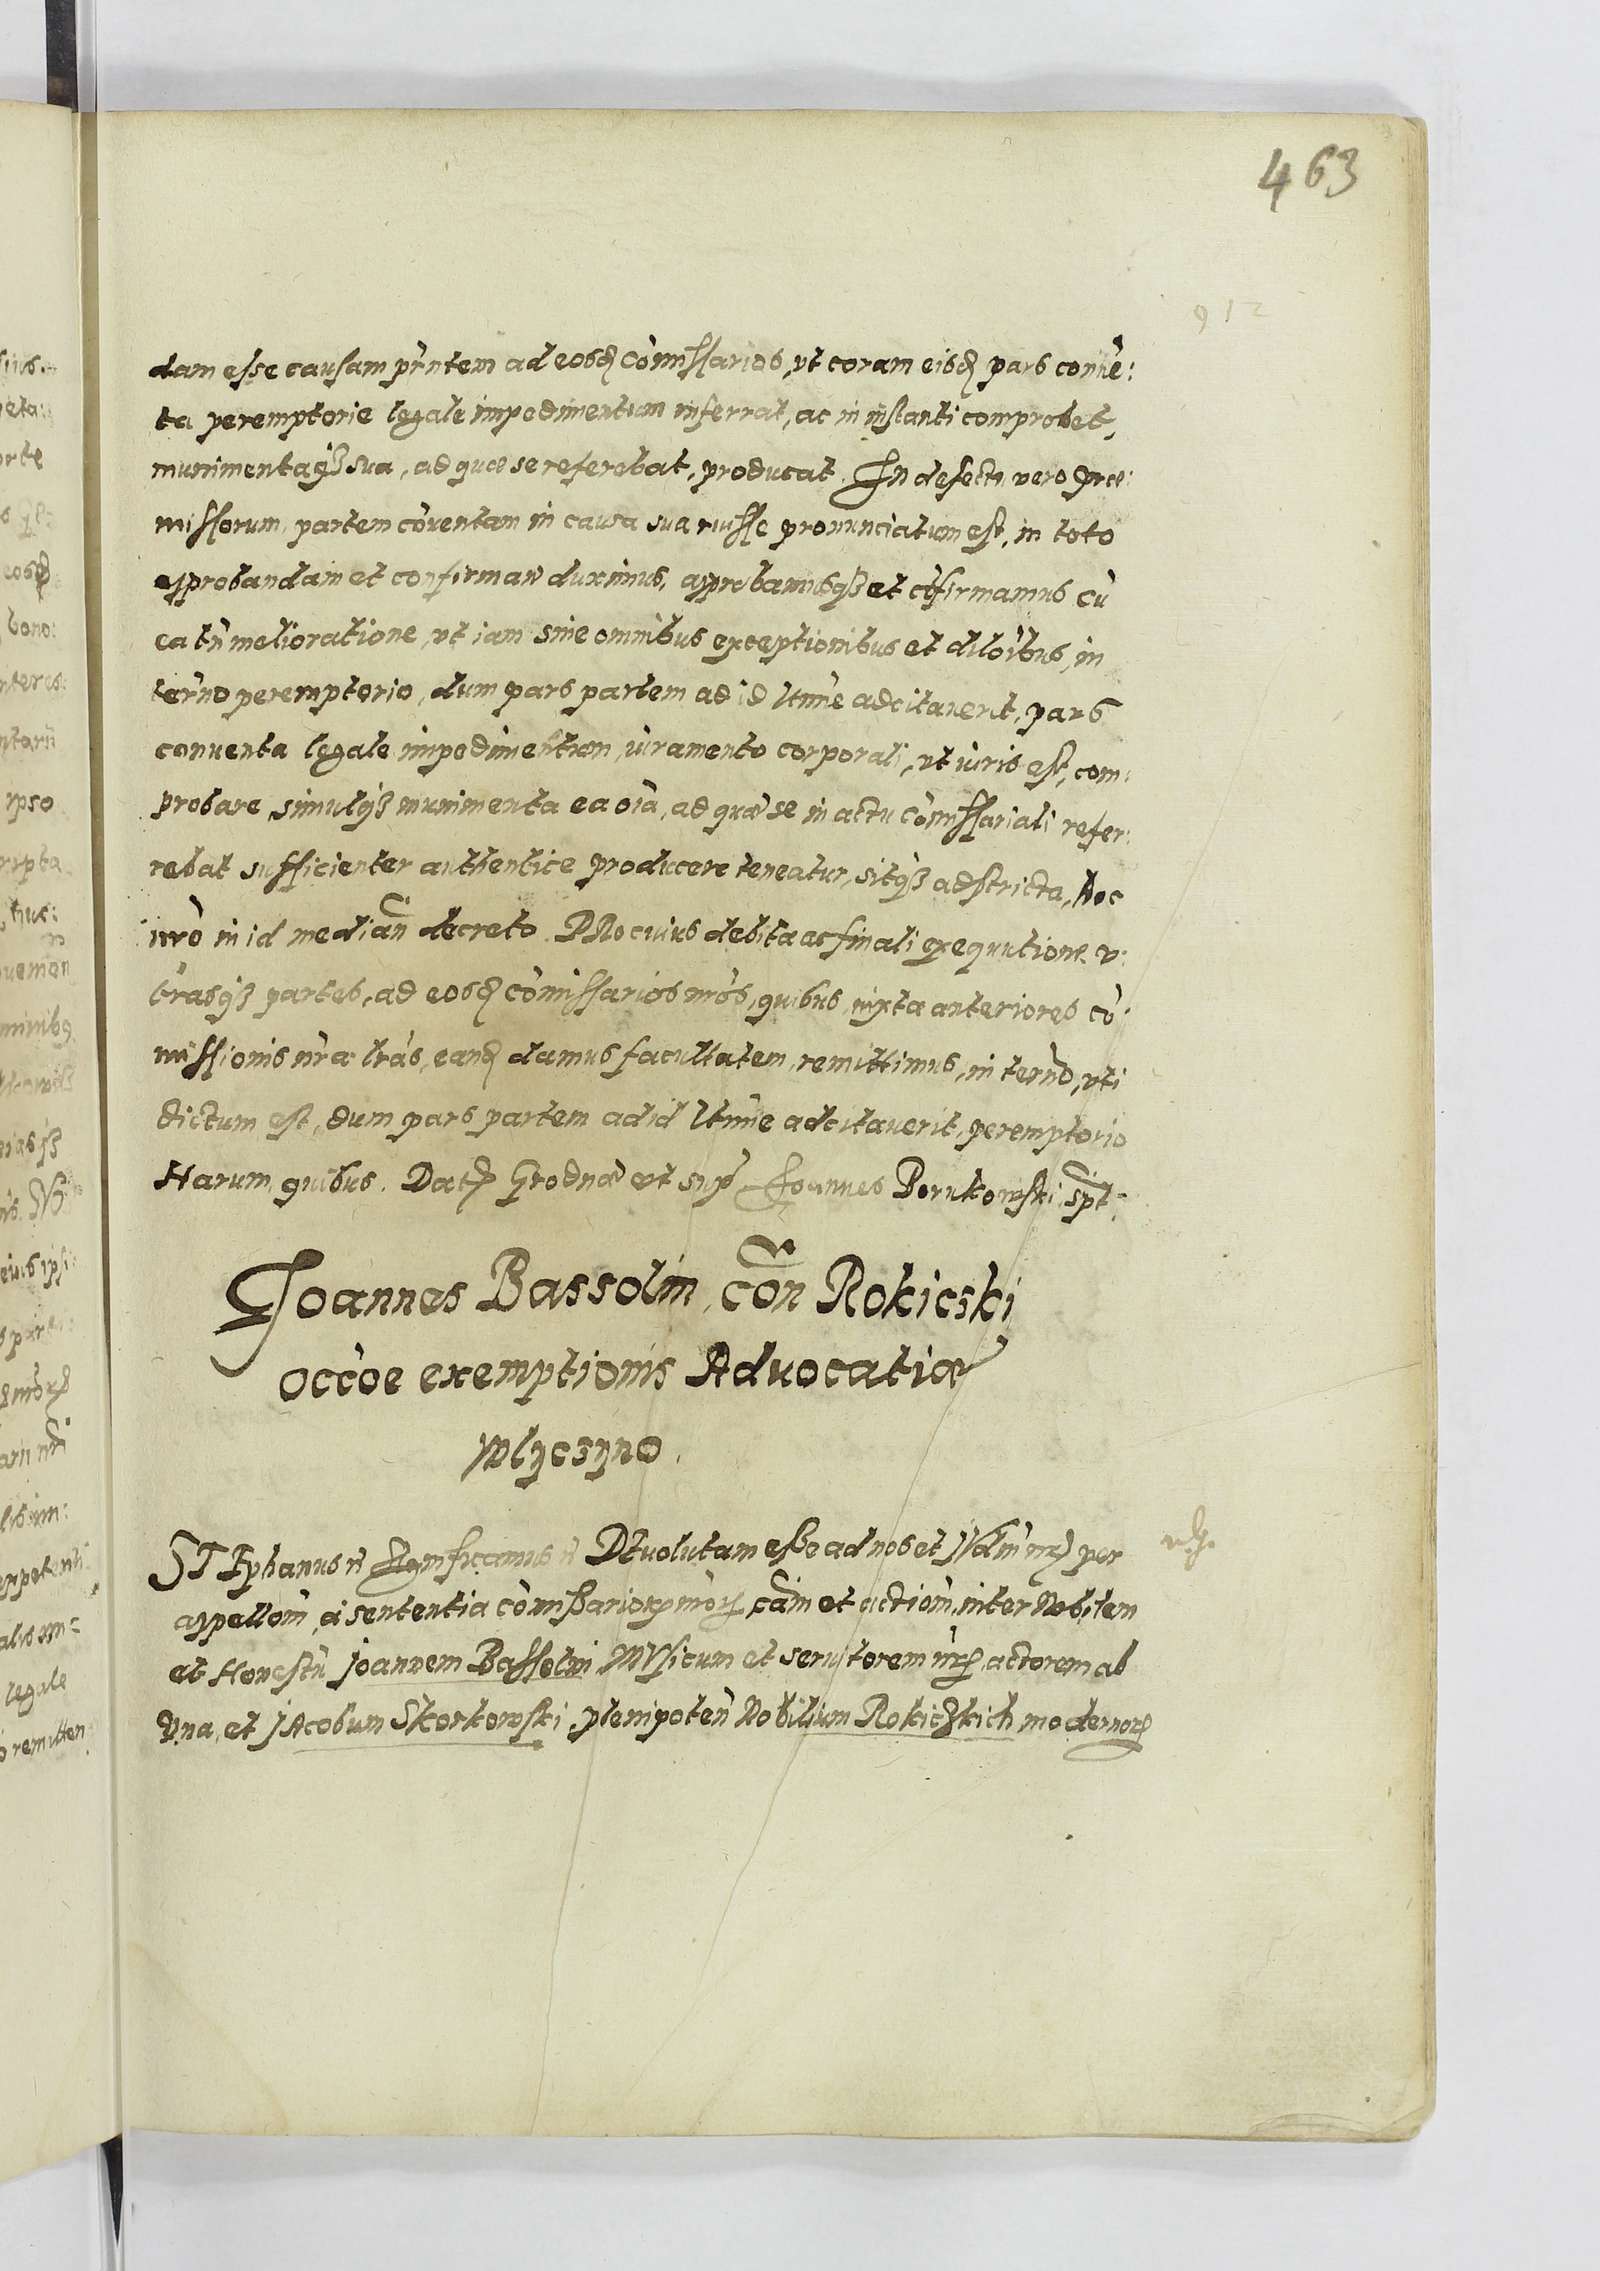 463
dam esse causam prñtem ad eosq̃ Cõmissarios, vt coram eisq̃ pars conuẽ:
ta peremptorie legale impedimentum inferrat, ac in instanti comprobet,
munimentaqꝫ sua, ad quæ se referebat, producat. In defectu vero præ:
missorum, partem cõuentam in causa sua ruisse pronunciatum est, in toto
approbandam et confirmañ duximus, approbamusqꝫ et cõfirmamus cũ
ea tñ melioratione, vt iam sine omnibus exceptionibus et dilõibus, in
terño peremptorio, dum pars partem ad id ltimẽ adcitauerit, pars
conuenta legale impedimentum, iuramento corporali, vt iuris est, com:
probare, simulqꝫ munimenta ea oĩa, ad quæ se in actu cõmissariali refer:
rebat sufficienter authentice producere teneatur, sitqꝫ adstricta, hoc
ñro in id mediañ decreto. PRo cuius debita ac finali exequutione v:
trasqꝫ partes, ad eosq̃ cõmissarios nr̃os, quibus iuxta anteriores cõ:
missionis nr̃æ lr̃as, eanq̃ damus facultatem, remittimus, in terño, vti
dictum est, dum pars partem ad id ltimẽ adcitauerit, peremptorio
Harum quibus. Datꝫ Grodnæ vt sup̃ Joannes Borukowski spt:
Joannes Bassolin, coñ Rokicski
occõe exemptionis Aduocatiæ
Wlycsyno.
STEphanus ñ Significamus ñ DEuolutam esse ad nos et Iudiũ nrꝫ per
appellom̃, a sententia cõmissarioꝝ nr̃oꝝ, cãm et actiom̃, inter Nobilem
et Honestũ Joannem Bassolin MUsicum et seruitorem nrꝫ, actorem ab
Vna, et JAcobum Skorkowski, plenipoteñ Nobilium Rokiczkich modernoꝝ